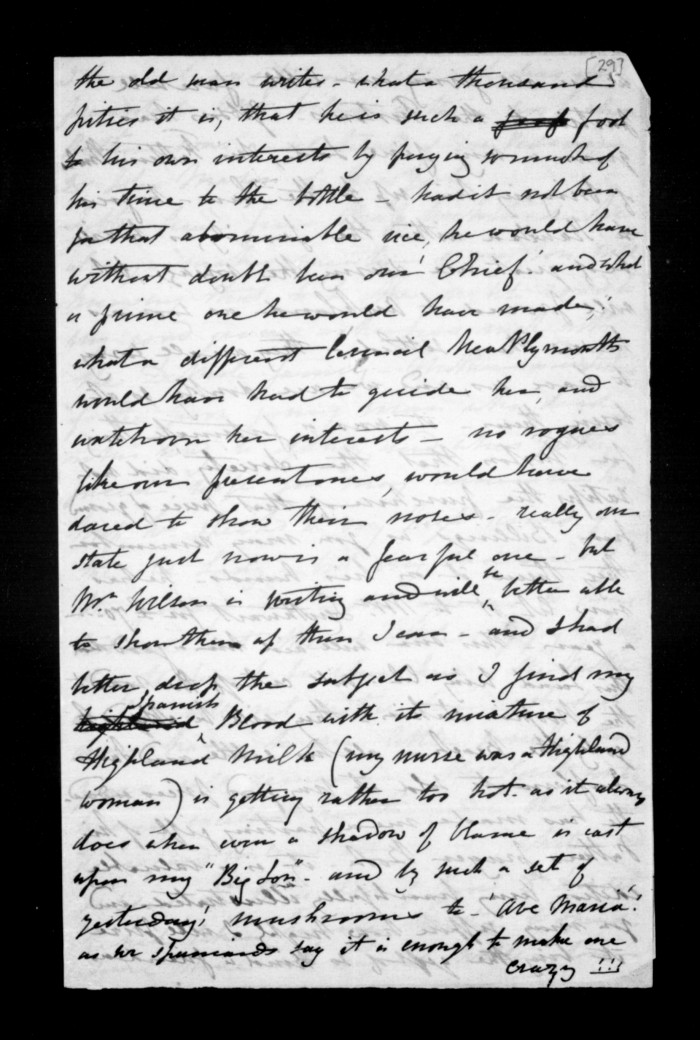 [29]
the old man writes - what a thousand
pities it is, that he is such a fool
to his own interests by paying so much of
his time to the bottle - had it not been
for that abominable vice, he would have
without doubt been our 'Chief' and what
a prime one he would have made!
what a different Council New Plymouth
would have had to guide her, and
watch over her interests - no rogues
like our present ones, would have
dared to show their noses - really our
state just now is a fearful one - but
Mr Wilson is writing and will be better able
to show them up than I can - and I had
better drop the subject as I find my
highland Spanish Blood with its mixture of
Highland milk (my nurse was a Highland
woman) is getting rather too hot. as it always
does when even a shadow of blame is cast
upon my "Big Son" - and by such a set of
yesterday's mushrooms to - Ave Maria!!
as we Spaniards say it is enough to make one
crazy !!!